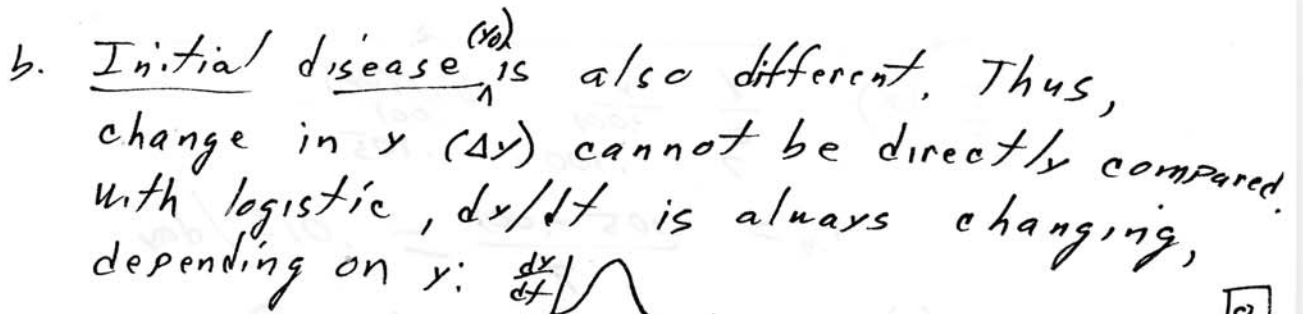 b. Initial disease (y₀) is also different. Thus,
change in y (Δy) cannot be directly compared.
With logistic, dy/dt is always changing,
depending on y: dy/dt